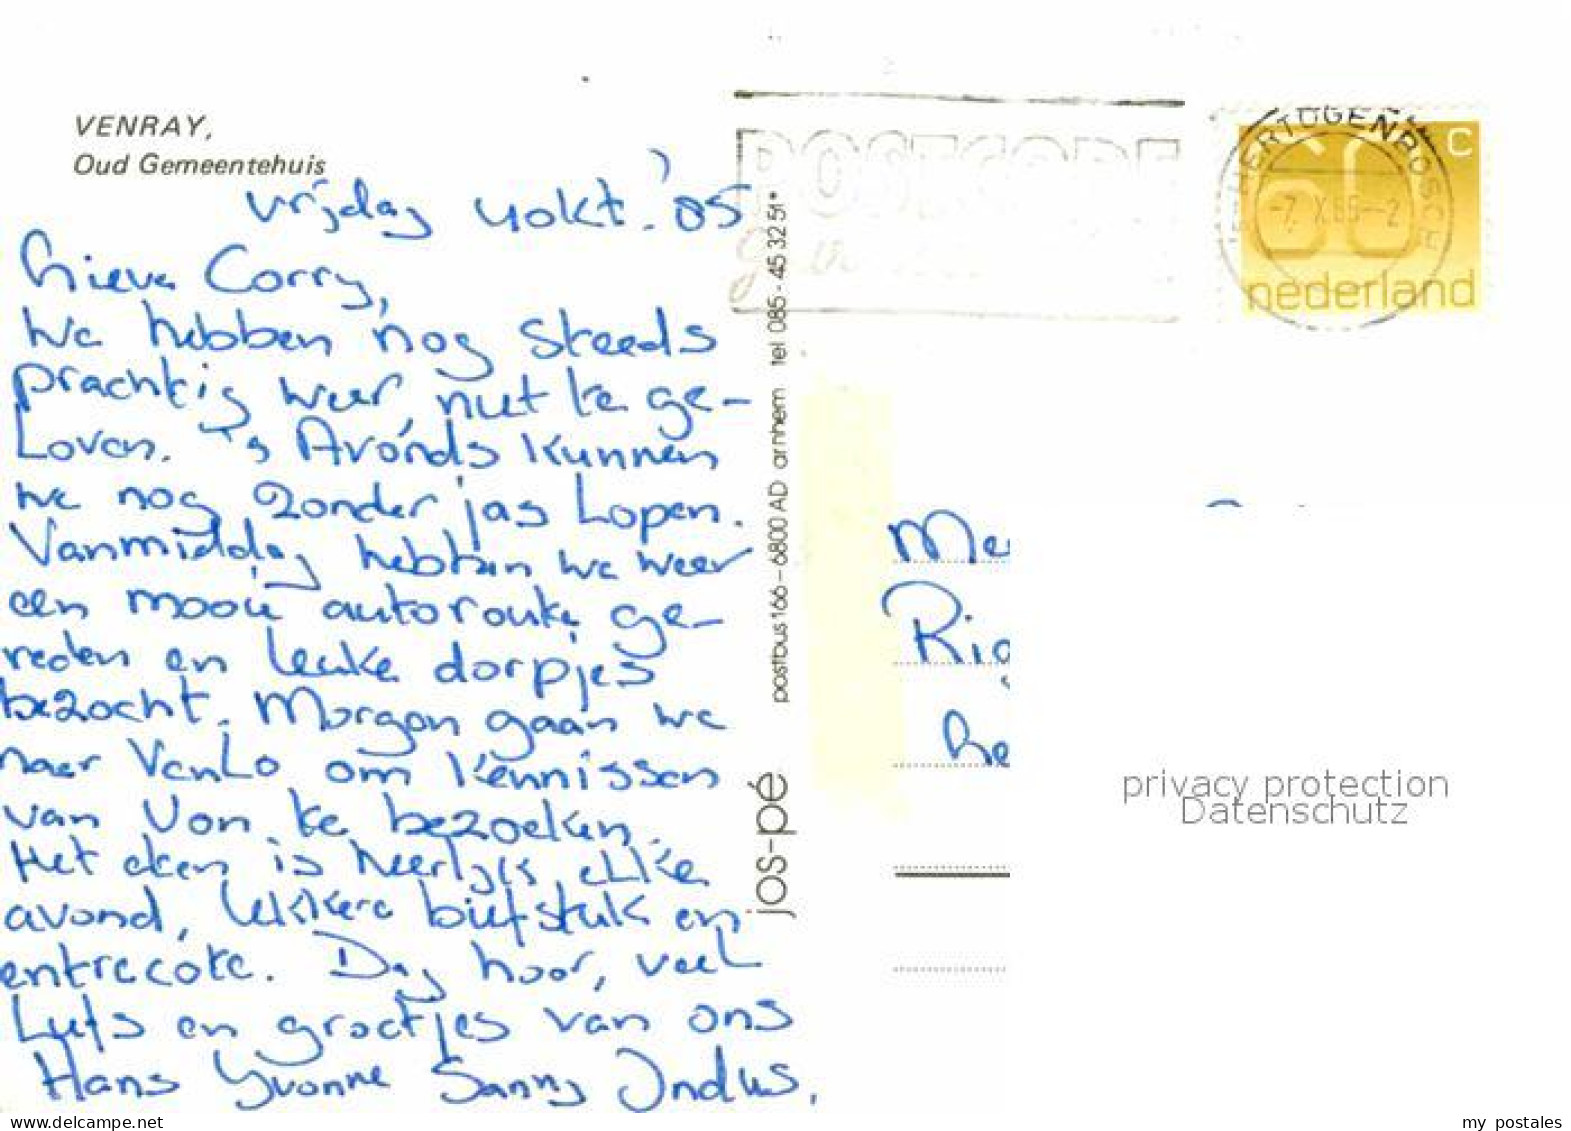 VENRAY,
Oud Gemeentehuis
vrijdag 4 okt. '85
Lieve Corry,
We hebben nog steeds
prachtig weer, niet te ge-
loven. 's Avonds kunnen
we nog zonder jas lopen.
Vanmiddag hebben we weer
een mooie autoroute ge-
reden en leuke dorpjes
bezocht. Morgen gaan we
naar Venlo om kennissen
van Von te bezoeken.
Het eten is heerlijk elke
avond, lekkere biefstuk en
entrecote. Dag hoor, veel
liefs en groetjes van ons
Hans Yvonne Sanny Indus,
jos-pé postbus 166-6800 AD arnhem tel 085-45 32 51*
POSTCODE
'S-HERTOGENBOSCH
-7.X.85--2
60 C
nederland
Me
Rig
he
privacy protection
Datenschutz
delcampe.net
my_postales